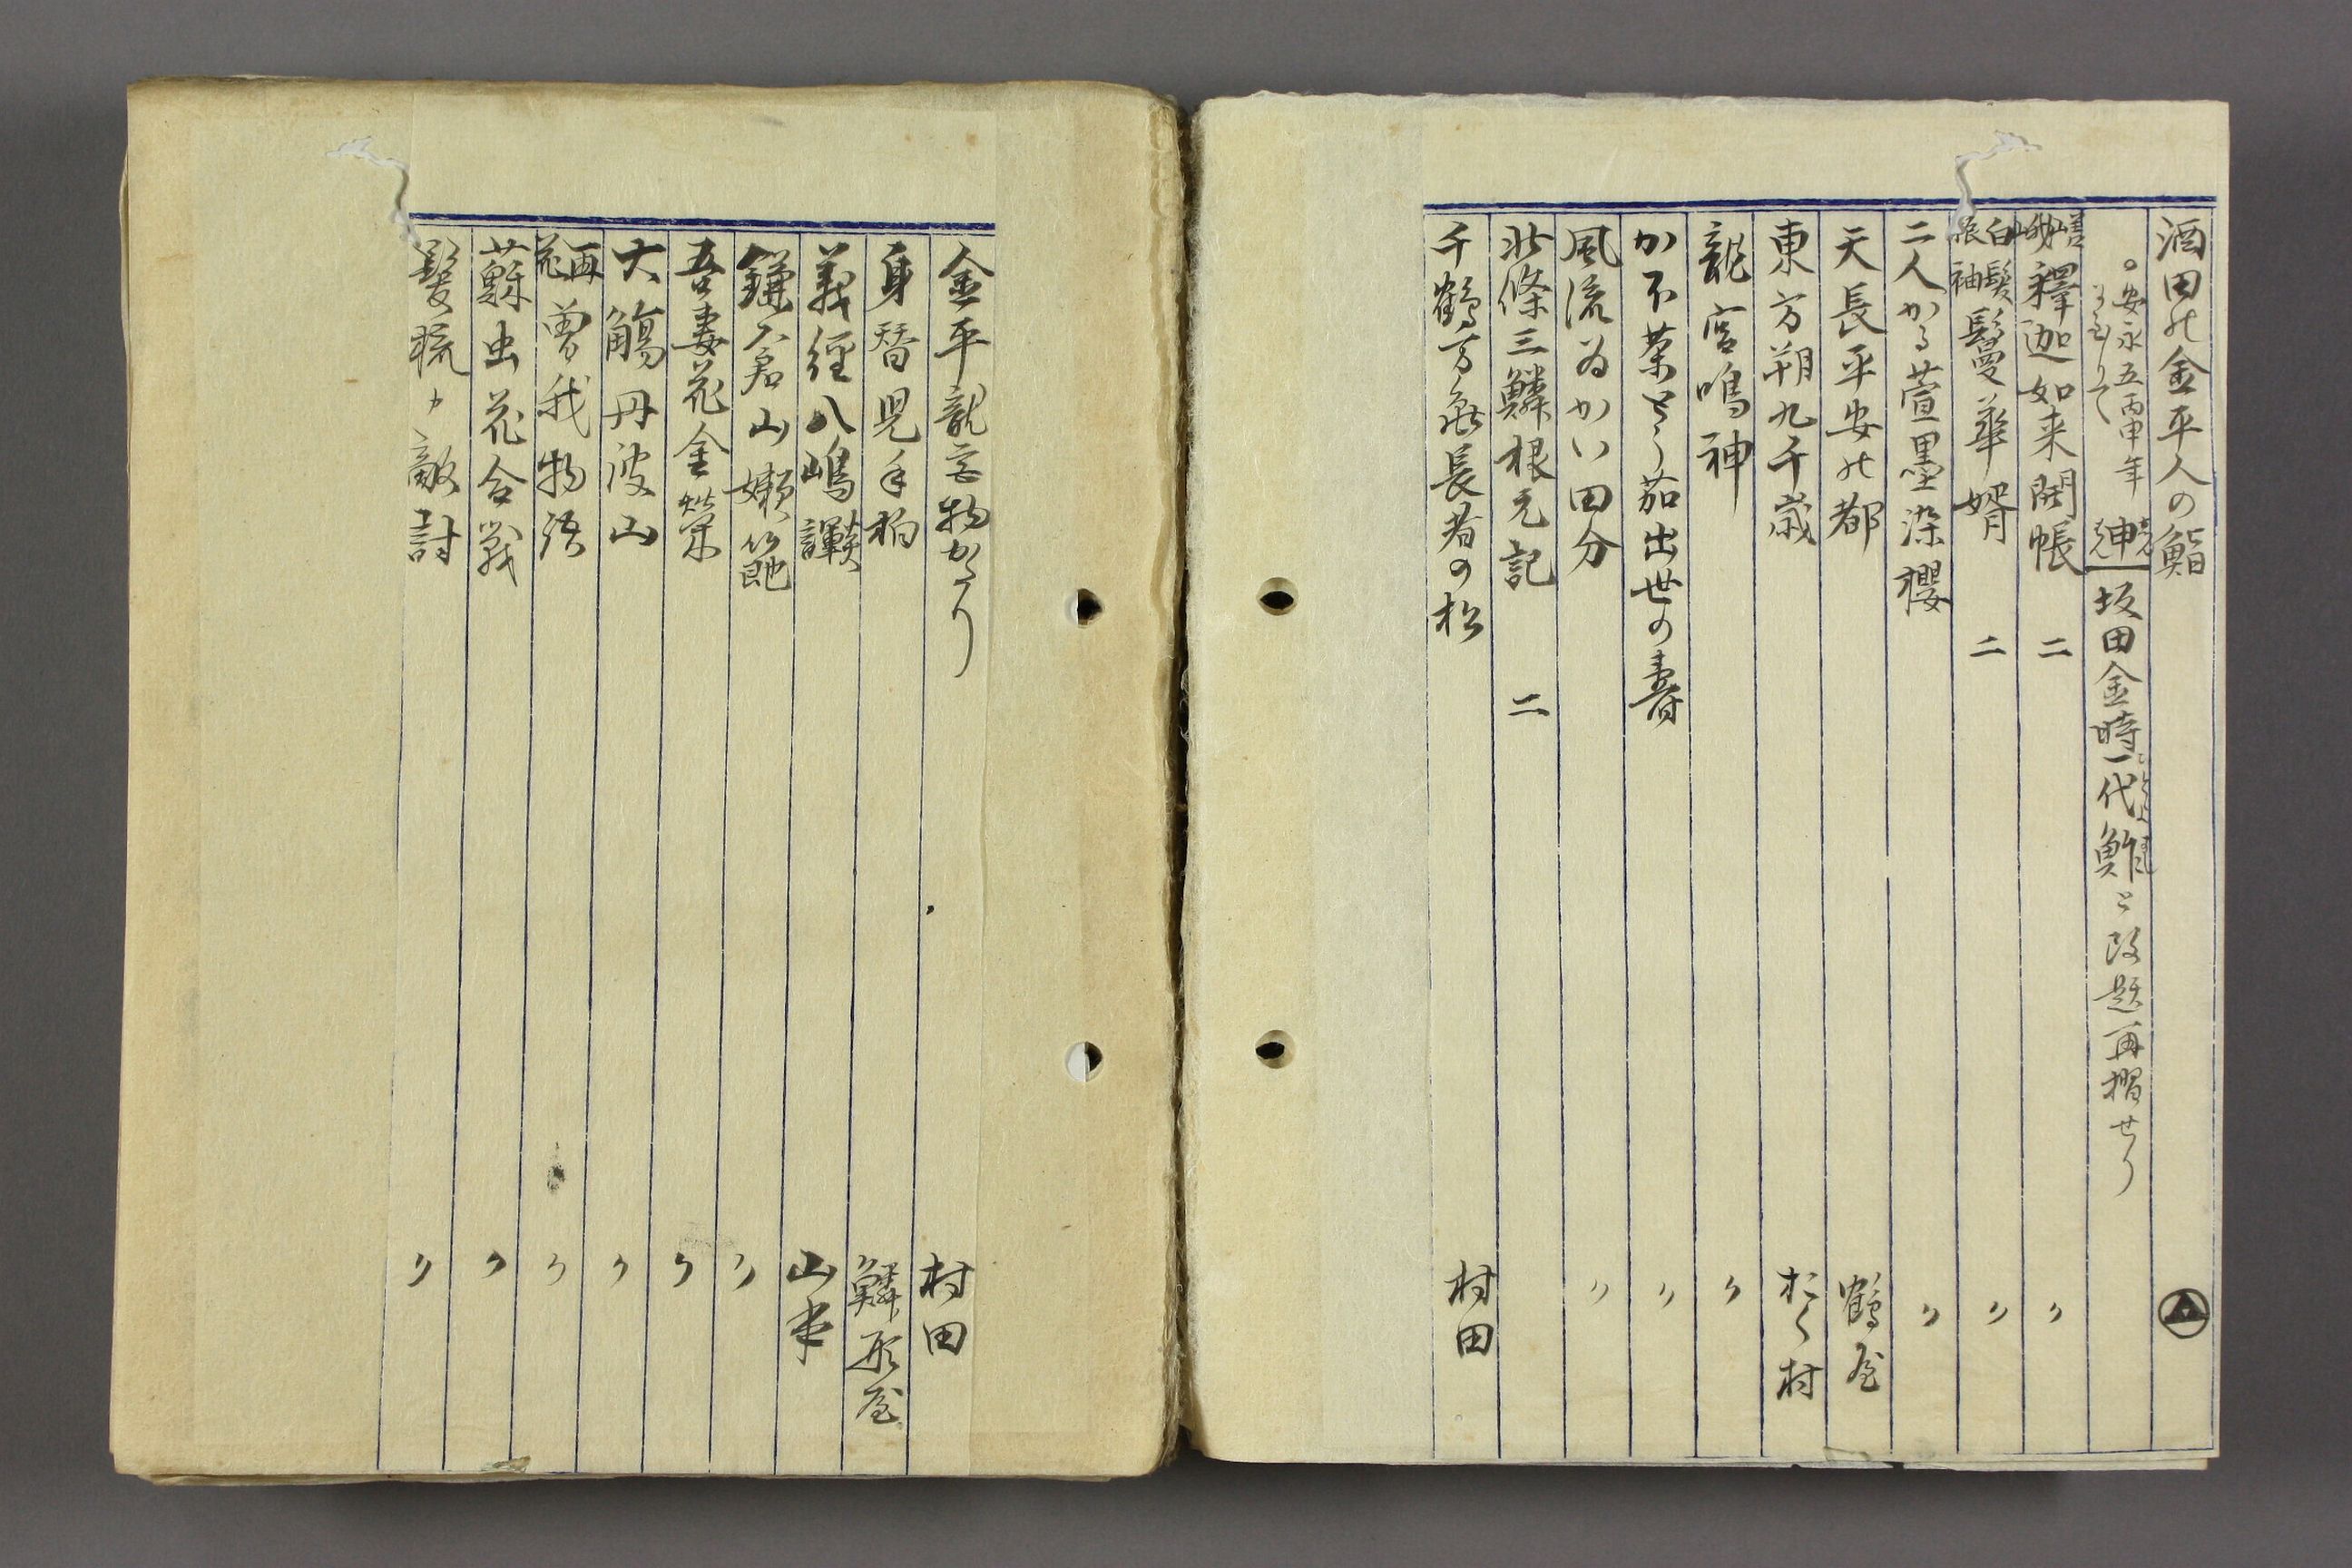 酒田の金平人の鮨
安永五丙申年 申 坂田金時一代鮓と改題再摺せり
嵯峨釋迦如来開帳 二 〃
白髪振袖鬘華婿 二 〃
二人かるか萱墨染櫻 〃
天長平安の都 鶴屋
東方朔九千歳 おく村
龍宮鳴神 〃
か不茶とう茄出世の壽 〃
風流ゐかい田分 〃
北條三鱗根元記 二
千鶴万亀長者の松 村田
金平龍宮物かたり 村田
身替児手柏 鱗形屋
義経八嶋 山本
鎌倉山 〃
吾妻花金 〃
大觴丹波山 〃
再花曽我物語 〃
蘇出花合戦 〃
髪梳カ敵討 〃